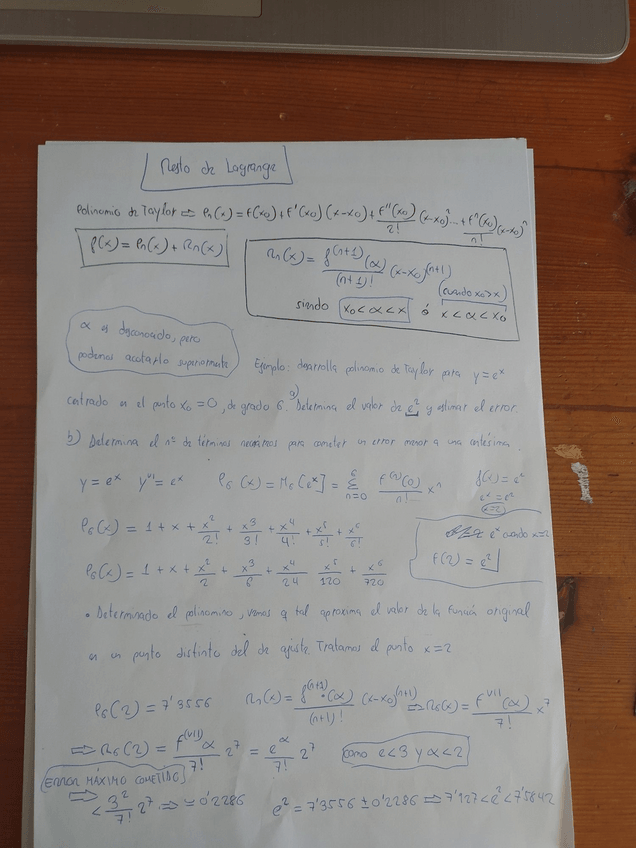 Resto de Lagrange
Polinomio de Taylor ⇒ Pn(x) = f(x0) + f'(x0) (x-x0) + f''(x0)/2! (x-x0)^... + f^n(x0)/n! (x-x0)^n
f(x) = Pn(x) + Rn(x)
Rn(x) = f^(n+1)(α)/(n+1)! (x-x0)^(n+1)
(cuando x0>x)
siendo x0 < α < x ó x < α < x0
α es desconocido, pero
podemos acotarlo superiormente
Ejemplo: desarrolla polinomio de Taylor para y = e^x
centrado en el punto x0 = 0, de grado 6. a) Determina el valor de e^2 y estimar el error.
b) Determina el nº de términos necesarios para cometer un error menor a una centésima.
y = e^x y^VI = e^x P6(x) = M6[e^x] = Σ n=0 6 f^(n)(0)/n! x^n
f(x) = e^x
e^x = e^2
x=2
P6(x) = 1 + x + x^2/2! + x^3/3! + x^4/4! + x^5/5! + x^6/6!
e^x cuando x=2
f(2) = e^2
P6(x) = 1 + x + x^2/2 + x^3/6 + x^4/24 x^5/120 + x^6/720
• Determinado el polinomio, vemos q tal aproxima el valor de la función original
en un punto distinto del de ajuste. Tratamos el punto x=2
P6(2) = 7'3556 Rn(x) = f^(n+1)(α)/(n+1)! (x-x0)^(n+1) ⇒ R6(x) = f^VII(α)/7! x^7
⇒ R6(2) = f^(VII)α/7! 2^7 = e^α/7! 2^7 como e<3 y α<2
(ERROR MÁXIMO COMETIDO)
⇒ < 3^2/7! 2^7 ⇒ ≃ 0'2286 e^2 = 7'3556 ± 0'2286 ⇒ 7'127 < e^2 < 7'5842